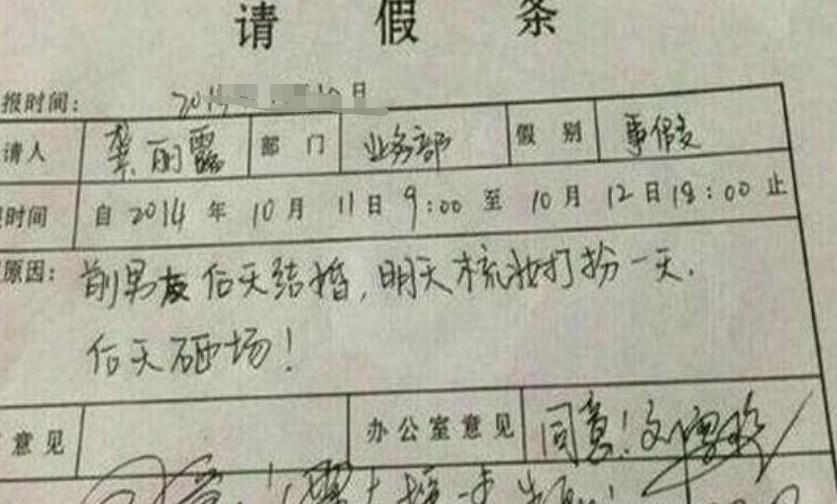 请假条
报时间: 2014 日
请人 龚丽露 部门 业务部 假别 事假
时间 自 2014 年 10 月 11 日 9:00 至 10 月 12 日 18:00 止
原因: 前男友后天结婚,明天梳妆打扮一天.
后天砸场!
意见 办公室意见 同意!